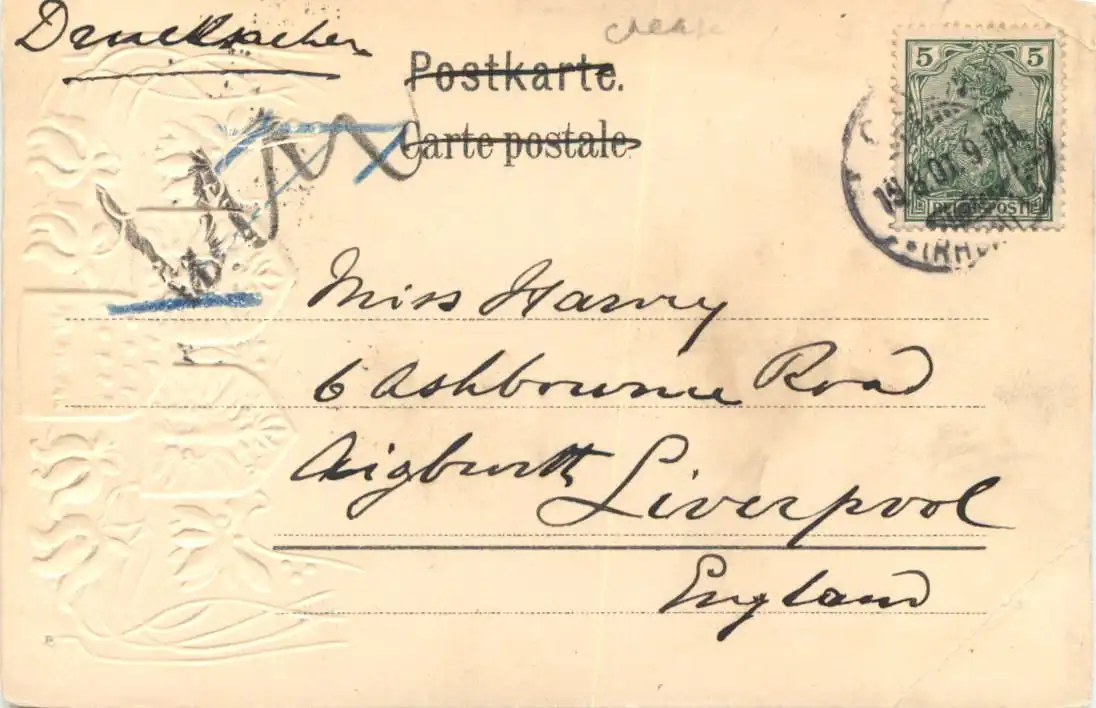 Drucksachen
crease
Postkarte.
Carte postale
5 5
REICHSPOST
Miss Harvey
6 Ashbourne Road
Aigburth Liverpool
England